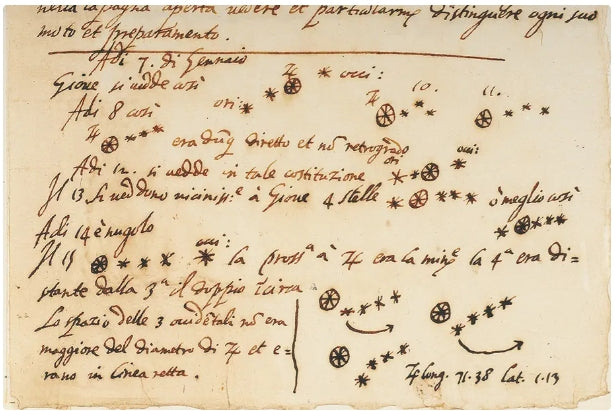 nella capagna aperta vedere et particularmᵉ distinguere ogni suo
moto et preparamento.
Adi 7. di Gennaio
Giove si vedde così ori: * * ♃ * occi:
Adi 8 così ♃ * * * 10. ♃ * * * 11. * * *
era dūq diretto et nō retrogrado
Adi 12. si vedde in tale costituzione ori * * * occi:
Il 13 si veddono vicinissᵉ à Giove 4 stelle * * * * ò meglio così * * * *
Adi 14 è nugolo
Il 15 * * * * occi: la prossᵃ à ♃ era la minᵉ la 4ᵃ era di=
stante dalla 3ᵃ il doppio īcirca
Lo spazio delle 3 occidētali nō era
maggiore del diametro di ♃ et e=
rano in linea retta.
♃ long. 71.38 lat. 1.13